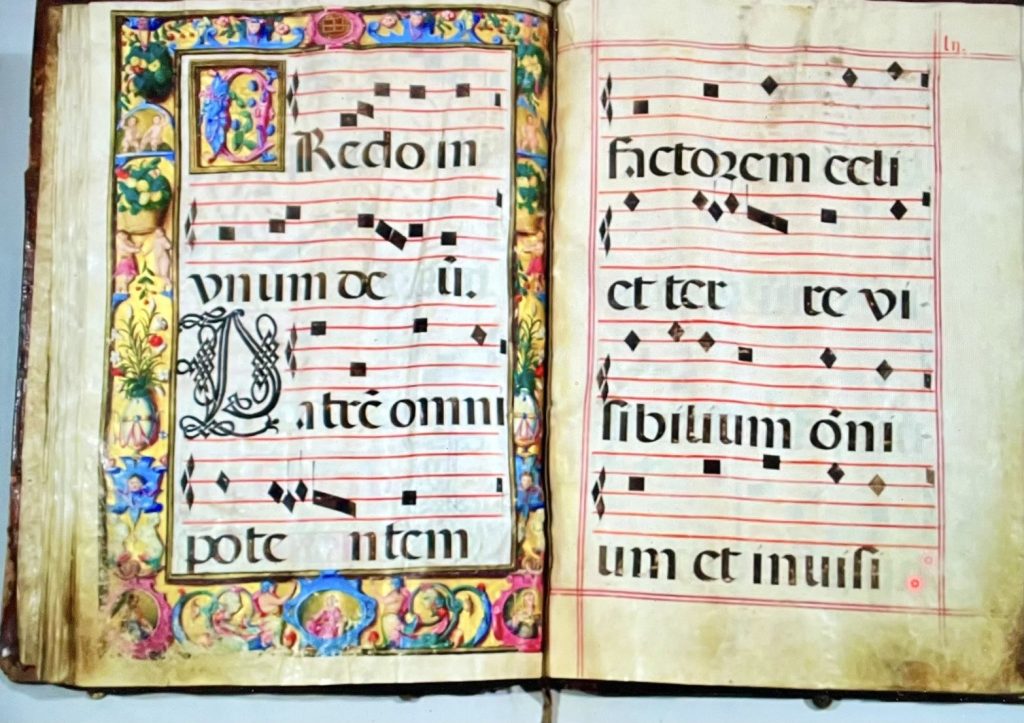 CRedo in
vnum de ũ.
Patrẽ omni
pote ntem
ln.
factorem celi
et ter re vi
sibilium õni
um et inuisi